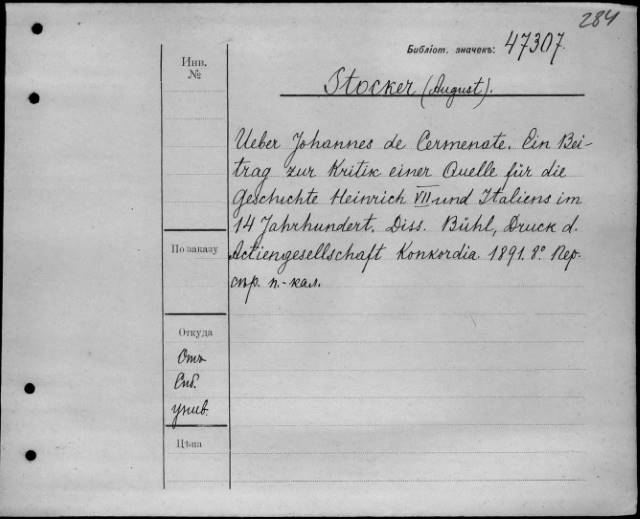 284
Библіот. значекъ: 47307.
Инв.
№
Stocker (August).
Ueber Johannes de Cermenate. Ein Bei-
trag zur Kritik einer Quelle für die
Geschichte Heinrich VII und Italiens im
14 Jahrhundert. Diss. Bühl, Druck d.
По заказу
Actiengesellschaft Konkordia. 1891. 8°. Пер-
п.-кал.
Откуда
Отъ
Спб.
унив.
Цѣна